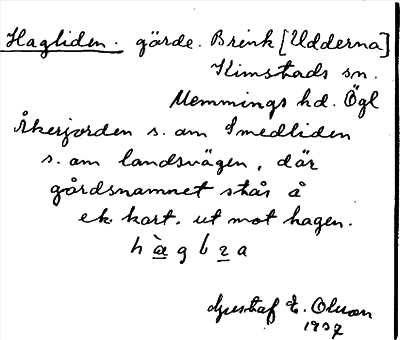 Hagliden. gärde. Brink [Udderna]
Kimstads sn.
Memmings hd. Ögl
Åkerjorden s. om Smedliden
s. om landsvägen, där
gårdsnamnet står å
ek. kart. ut mot hagen.
Gustaf E. Olson
1937